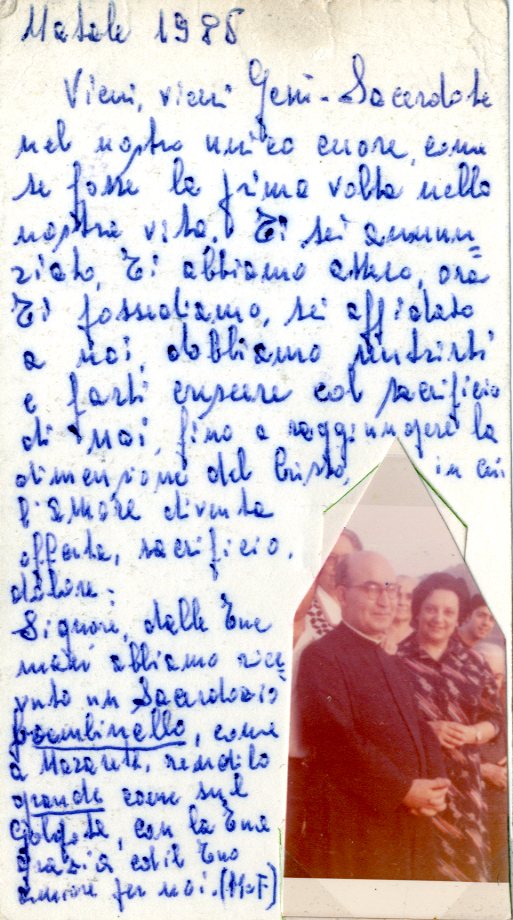 Natale 1985
Vieni, vieni Gesù-Sacerdote
nel nostro unico cuore, come
se fosse la prima volta nella
nostra vita. Ti sei annun=
ziato, Ti abbiamo atteso, ora
Ti possediamo, sei affidato
a noi, dobbiamo nutrirti
e farti crescere col sacrificio
di noi, fino a raggiungere la
dimensione del Cristo, in cui
l'amore diventa
offerta, sacrificio,
dolore:
Signore, dalle Tue
mani abbiamo rice=
vuto un Sacerdozio
bambinello, come
a Nazaret, rendilo
grande come sul
Golgota, con la Tua
grazia col il Tuo
amore per noi.